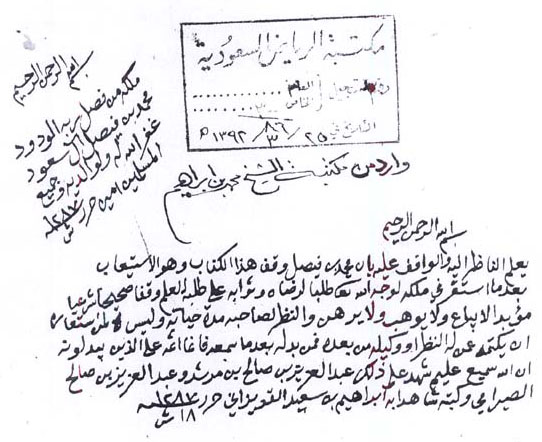 مكتبة الرياض السعودية
رقم التسجيل العام
الخاص
التاريخ في ٢٥/٣/٨٦
١٣٩٢ م
وارد من مكتبة الشيخ محمد بن ابراهيم
بسم الله الرحمن الرحيم
ملكه من فضل ربه الودود
محمد بن فيصل آل سعود
غفر الله له ولوالديه وجميع
المسلمين امين حرر
١٢٨٧
بسم الله الرحمن الرحيم
يعلم الناظر اليه والواقف عليه بان محمد بن فيصل وقف هذا الكتاب وهو الاستيعاب
بعد ما استقر في ملكه لوجه الله تعالى طلبا لرضاه وثوابه على طلبة العلم وقفا صحيحا شرعيا
مؤبدا لا يباع ولا يوهب ولا يرهن والنظر لصاحبه مدة حياته وليس لمن استعاره
ان يكتمه عن له النظر او وكيله من بعده فمن بدله بعدما سمعه فانما اثمه على الذين يبدلونه
ان الله سميع عليم شهد على ذلك عبد العزيز بن صالح بن مرشد وعبد العزيز بن صالح
الصيرامي وكتبه شاهدا به ابراهيم بن سعيد حرر ١٢٨٧
١٨